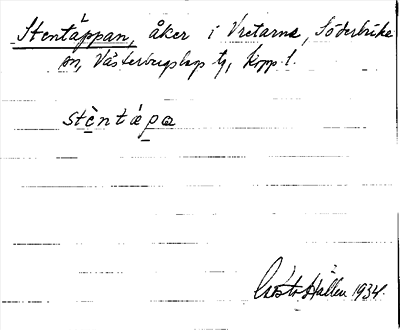 Stentäppan, åker i Vretarna, Söderbärke
sn, Västerbergslags tg, Kopp. l.
stèntǽpa
Gösta Hallen 1934.